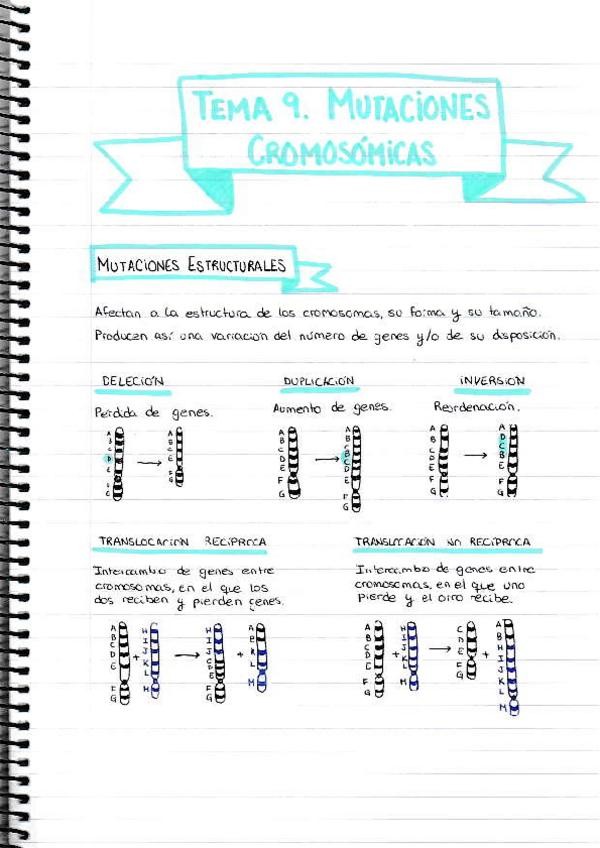 TEMA 9. MUTACIONES
CROMOSÓMICAS
MUTACIONES ESTRUCTURALES
Afectan a la estructura de los cromosomas, su forma y su tamaño.
Producen así una variación del número de genes y/o de su disposición.
DELECIÓN
Pérdida de genes.
A B C D E F G
A B C E F G
DUPLICACIÓN
Aumento de genes.
A B C D E F G
A B B C D E F G
INVERSIÓN
Reordenación.
A B C D E F G
A D C B E F G
TRANSLOCACIÓN RECÍPROCA
Intercambio de genes entre
cromosomas, en el que los
dos reciben y pierden genes.
A B C D E F G + H I J K L M
H I J C D E F G + A B K L M
TRANSLOCACIÓN NO RECÍPROCA
Intercambio de genes entre
cromosomas, en el que uno
pierde y el otro recibe.
A B C D E F G + H I J K L M
C D E F G + A B H I J K L M